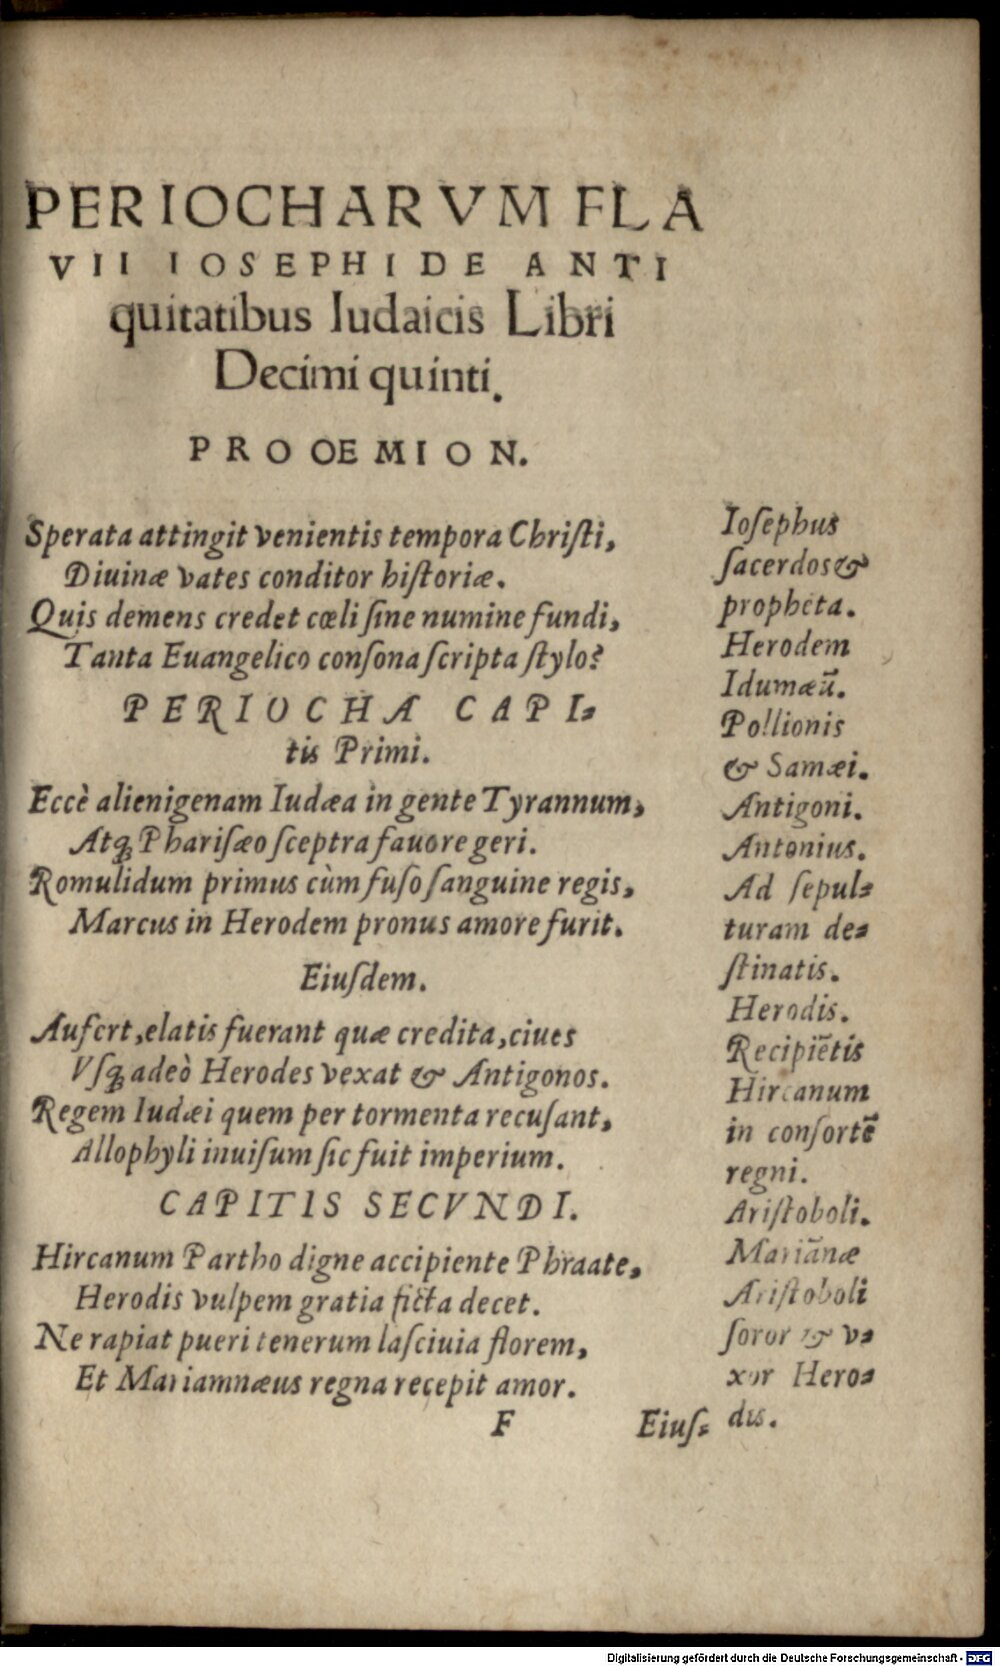 PERIOCHARVM FLA
VII IOSEPHI DE ANTI
quitatibus Iudaicis Libri
Decimi quinti.
PROOEMION.
Sperata attingit venientis tempora Chriſti,
Diuinæ vates conditor hiſtoriæ.
Quis demens credet cœli ſine numine fundi,
Tanta Euangelico conſona ſcripta ſtylo?
PERIOCHA CAPI⸗
tis Primi.
Eccè alienigenam Iudæa in gente Tyrannum,
Atq; Phariſæo ſceptra fauore geri.
Romulidum primus cùm fuſo ſanguine regis,
Marcus in Herodem pronus amore furit.
Eiuſdem.
Aufert, elatis fuerant quæ credita, ciues
Vſq; adeò Herodes vexat & Antigonos.
Regem Iudæi quem per tormenta recuſant,
Allophyli inuiſum ſic fuit imperium.
CAPITIS SECVNDI.
Hircanum Partho digne accipiente Phraate,
Herodis vulpem gratia ficta decet.
Ne rapiat pueri tenerum laſciuia florem,
Et Mariamnæus regna recepit amor.
F
Eiuſ⸗
Ioſephus
ſacerdos &
propheta.
Herodem
Idumæū.
Pollionis
& Samæi.
Antigoni.
Antonius.
Ad ſepul⸗
turam de⸗
ſtinatis.
Herodis.
Recipiētis
Hircanum
in conſortē
regni.
Ariſtoboli.
Mariānæ
Ariſtoboli
ſoror & v⸗
xor Hero⸗
dis.
Digitalisierung gefördert durch die Deutsche Forschungsgemeinschaft - DFG